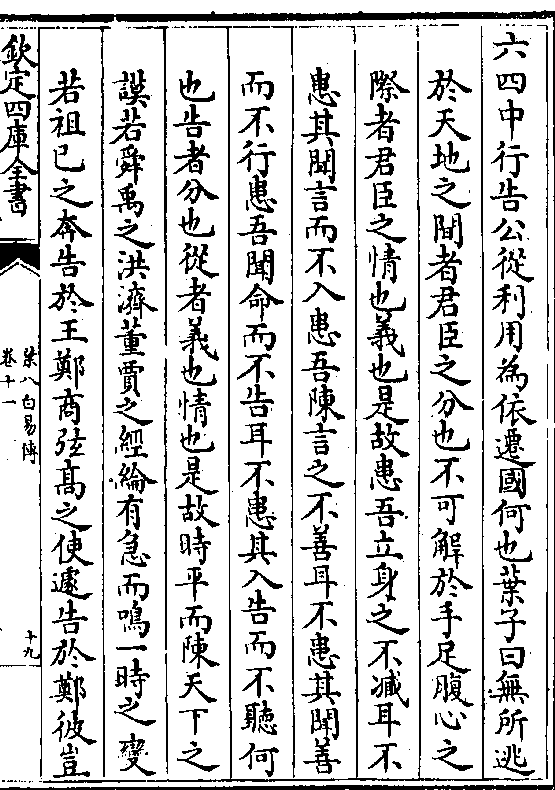 六四中行告公從利用為依遷國何也葉子曰無所逃
於天地之間者君臣之分也不可解於手足腹心之
際者君臣之情也義也是故患吾立身之不減耳不
患其聞言而不入患吾陳言之不善耳不患其聞善
而不行患吾聞命而不告耳不患其入告而不聽何
也告者分也從者義也情也是故時平而陳天下之
謨若舜禹之洪濟董賈之經綸有急而鳴一時之變
若祖已之奔告於王鄭商弦高之使遽告於鄭彼豈
欽定四庫全書
葉八白易傳
卷十一
十九